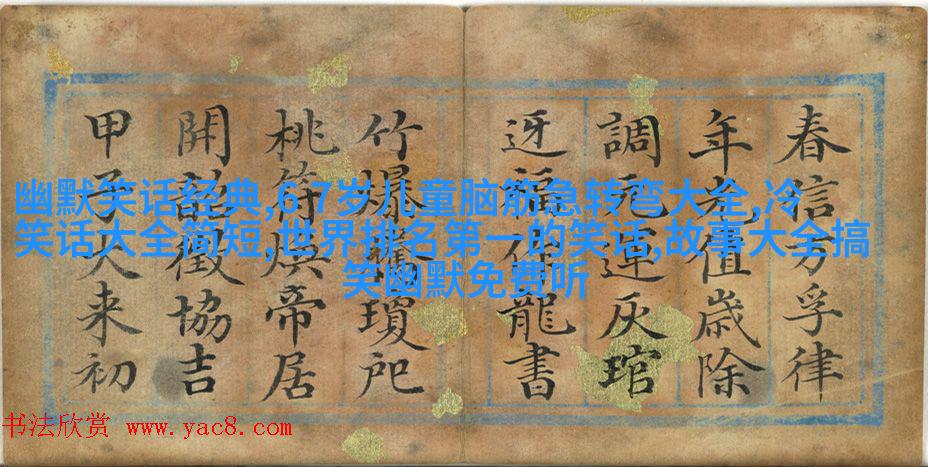 幽默笑话经典,6-7岁儿童脑筋急转弯大全,冷
笑话大全简短,世界排名第一的笑话,故事大全搞
笑幽默免费听
春信方孚律
年光值歲除
調元運灰琯
迓福龍書
竹爆瓊
桃符焕帝居
開韶徵協吉
甲子来初
书法欣赏 www.yac8.com